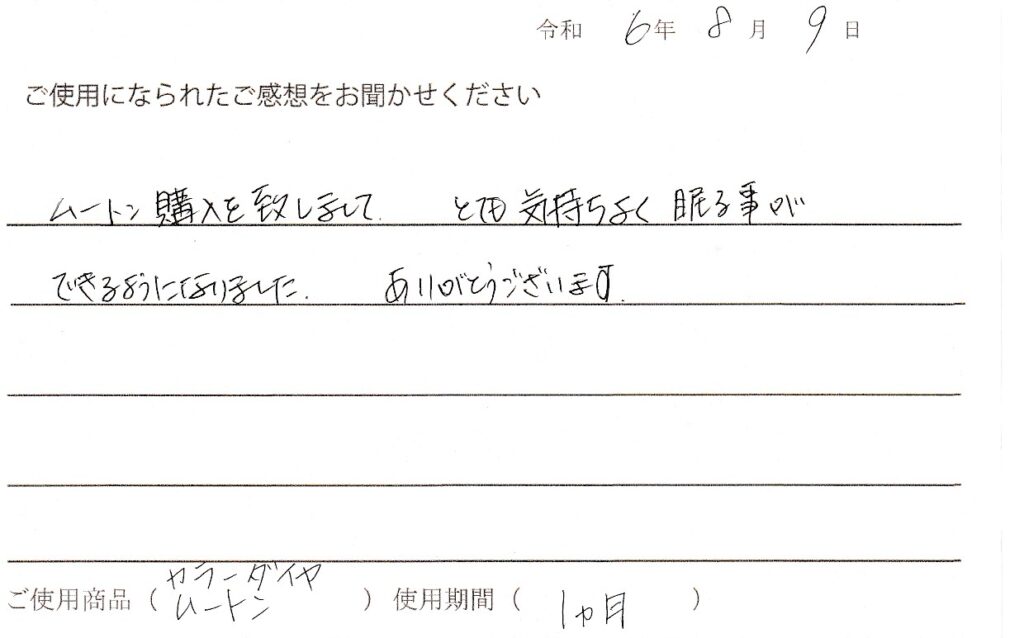 令和 6年 8月 9日
ご使用になられたご感想をお聞かせください
ムートン購入を致しまして. とても気持ちよく眠る事が
できるようになりました. ありがとうございます.
カラーダイヤ
ご使用商品（ムートン）使用期間（1ヵ月）